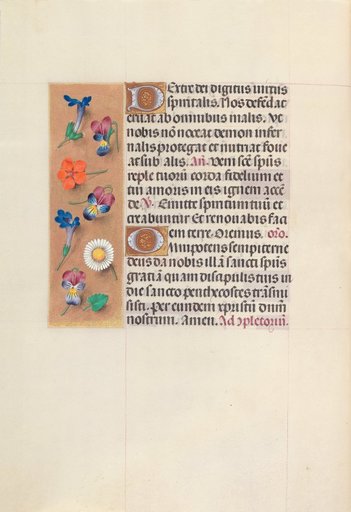 Dextre dei digitus virtus
spiritalis. Nos defēd at
eruat ab omnibus malis. Vt
nobis nō noceat demon infer
nalis protegat et nutriat foue
at sub alis. Añ. Veni scē spūs
reple tuorū corda fidelium et
tui amoris in eis ignem accē
de V. Emitte spiritum tuū et
creabuntur Et renouabis faci
em terre. Oremus. oro.
Omnipotens sempiterne
deus da nobis illā sancti spūs
gratiā quam discipulis tuis in
die sancto penthecostes trāsmi
sisti. per eundem xpristū dnm̄
nostrum. Amen. Ad ɔpletoriū.